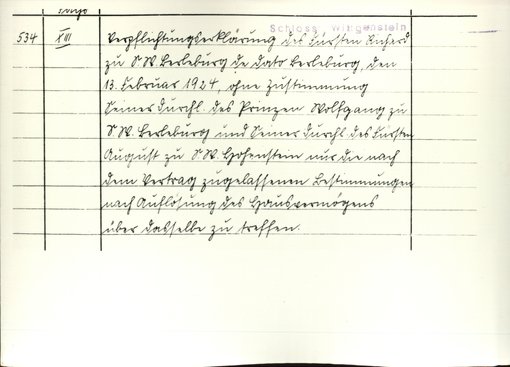 Schloss Wittgenstein
534 XIII Verpflichtungserklärung des Fürsten Richard
zu S.W. Berleburg de dato Berleburg, den
13. Februar 1924, ohne Zustimmung
Seiner Durchl. des Prinzen Wolfgang zu
S.W. Berleburg und Seiner Durchl. des Fürsten
August zu S.W. Hohenstein nur die nach
dem Vertrag zugelassenen Bestimmungen
nach Auflösung des Hausvermögens
über dasselbe zu treffen.